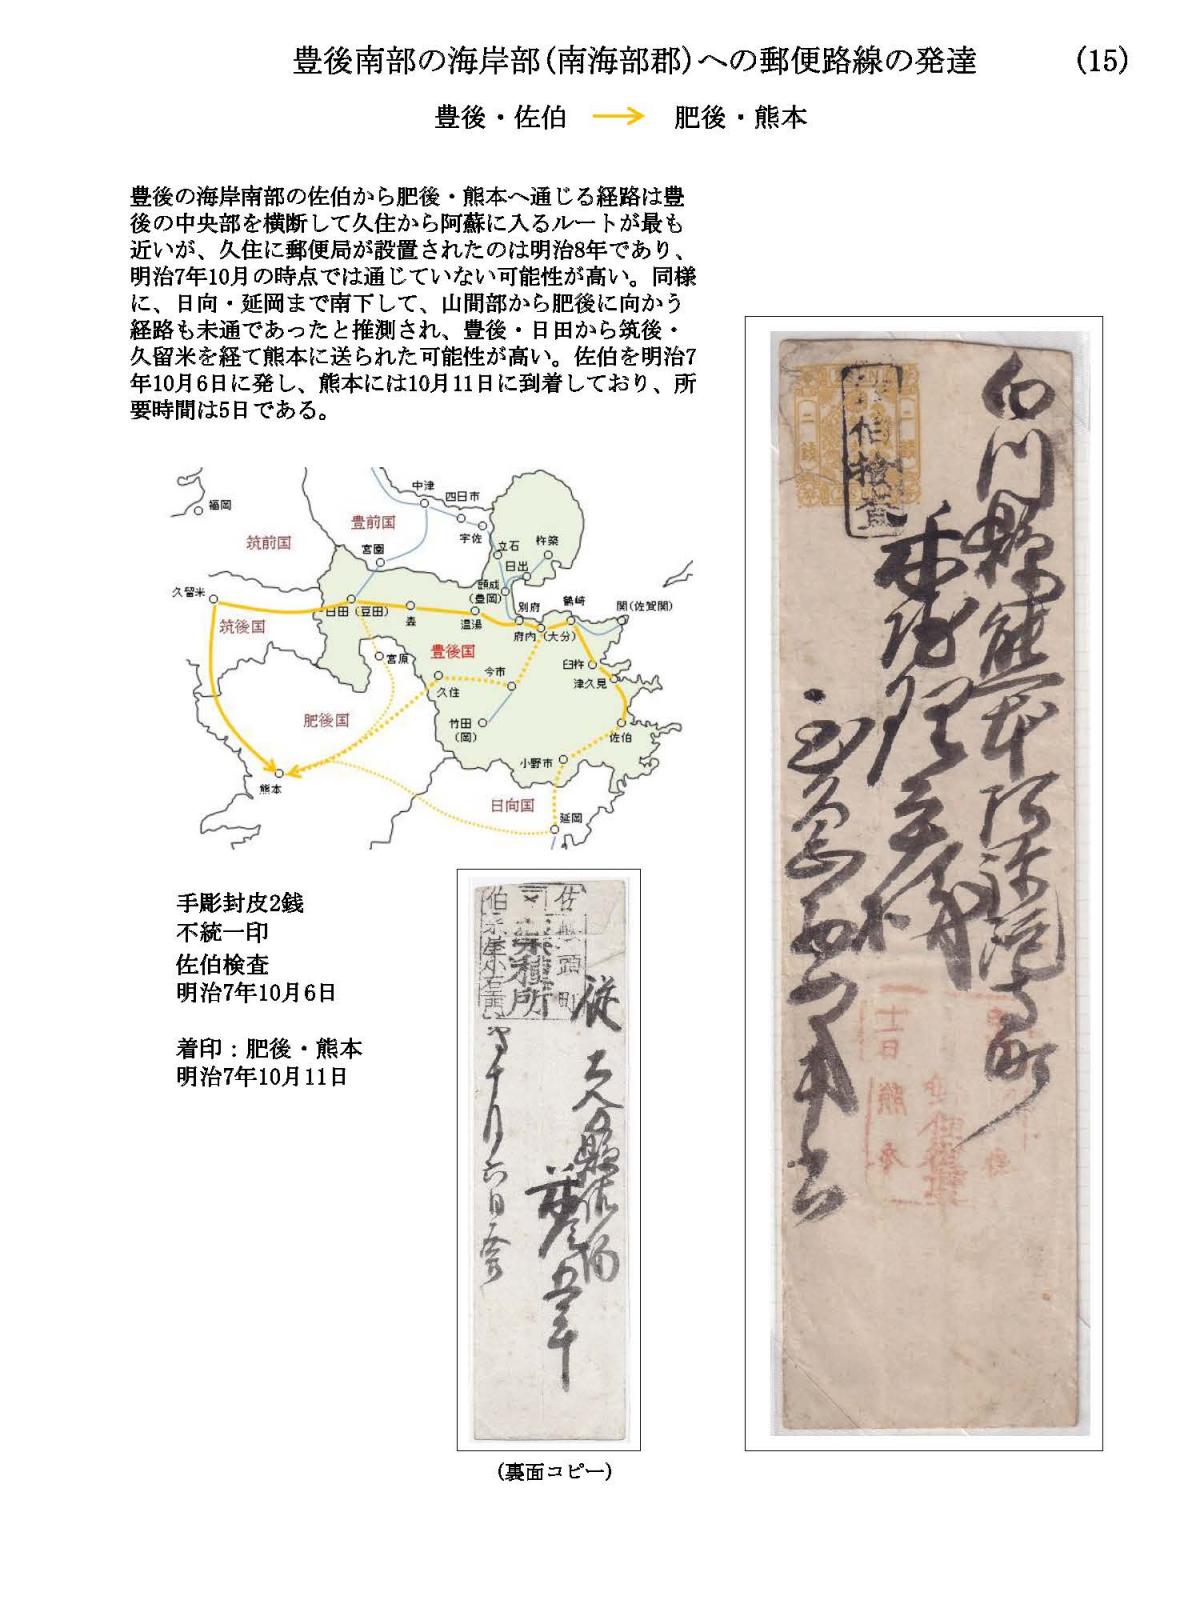 豊後南部の海岸部(南海部郡)への郵便路線の発達
(15)
豊後・佐伯 → 肥後・熊本
豊後の海岸南部の佐伯から肥後・熊本へ通じる経路は豊
後の中央部を横断して久住から阿蘇に入るルートが最も
近いが、久住に郵便局が設置されたのは明治8年であり、
明治7年10月の時点では通じていない可能性が高い。同様
に、日向・延岡まで南下して、山間部から肥後に向かう
経路も未通であったと推測され、豊後・日田から筑後・
久留米を経て熊本に送られた可能性が高い。佐伯を明治7
年10月6日に発し、熊本には10月11日に到着しており、所
要時間は5日である。
中津
四日市
福岡
豊前国
宇佐
筑前国
宮園
立石
杵築
日出
頭成
(豊岡)
久留米
日田(豆田)
森
温湯
別府
鶴崎
関(佐賀関)
府内(大分)
筑後国
豊後国
宮原
今市
臼杵
津久見
久住
肥後国
竹田
(岡)
佐伯
小野市
熊本
日向国
延岡
手彫封皮2銭
不統一印
佐伯検査
明治7年10月6日
着印：肥後・熊本
明治7年10月11日
(裏面コピー)
二銭
二銭
伯検査
白川縣熊本
町
十一日
熊本
佐
伯
種所
従
大分縣佐伯
十月六日